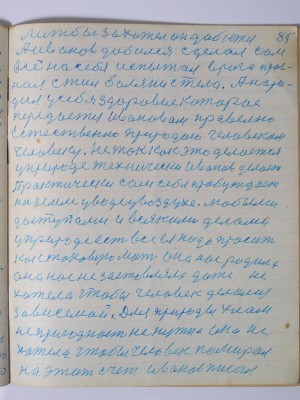 85
лишь бы захотел он добиться
А Иванов добился сделал сам
всё на себя испытал врага прог-
нал с тил болячи с тела. А наро-
дил у себя здоровие которое
передается Ивановам правельно
естественно природою человеком
человеку. Не так как это делается
у природе технически Иванов делает
практически сам себя пробуждает
на земле у воде у воздухе. Любыми
доступами и всякими делами
у природе есть всё ея надо просить
как таковую мать она нас родила
она нас не заставляла даже не
хотела чтобы человек делался
зависемой. Для природы хлам
непригодност не нужна она не
хотела чтобы человек помирал
на этот счет Иванов писал